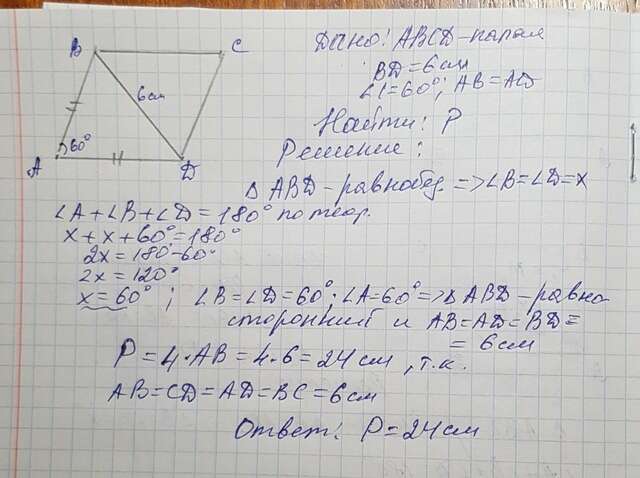 B
C
6см
60°
A
D
Дано: ABCD-парал
BD=6см
∠1=60°; AB=AD
Найти: P
Решение:
Δ ABD-равнобед. => ∠B=∠D=x
∠A+∠B+∠D=180° по теор.
x+x+60°=180°
2x=180-60°
2x=120°
x=60° ; ∠B=∠D=60°; ∠A=60° => Δ ABD-равно
сторонний и AB=AD=BD=
= 6см
P=4·AB=4·6=24см, т.к.
AB=CD=AD=BC=6см
Ответ: P=24см